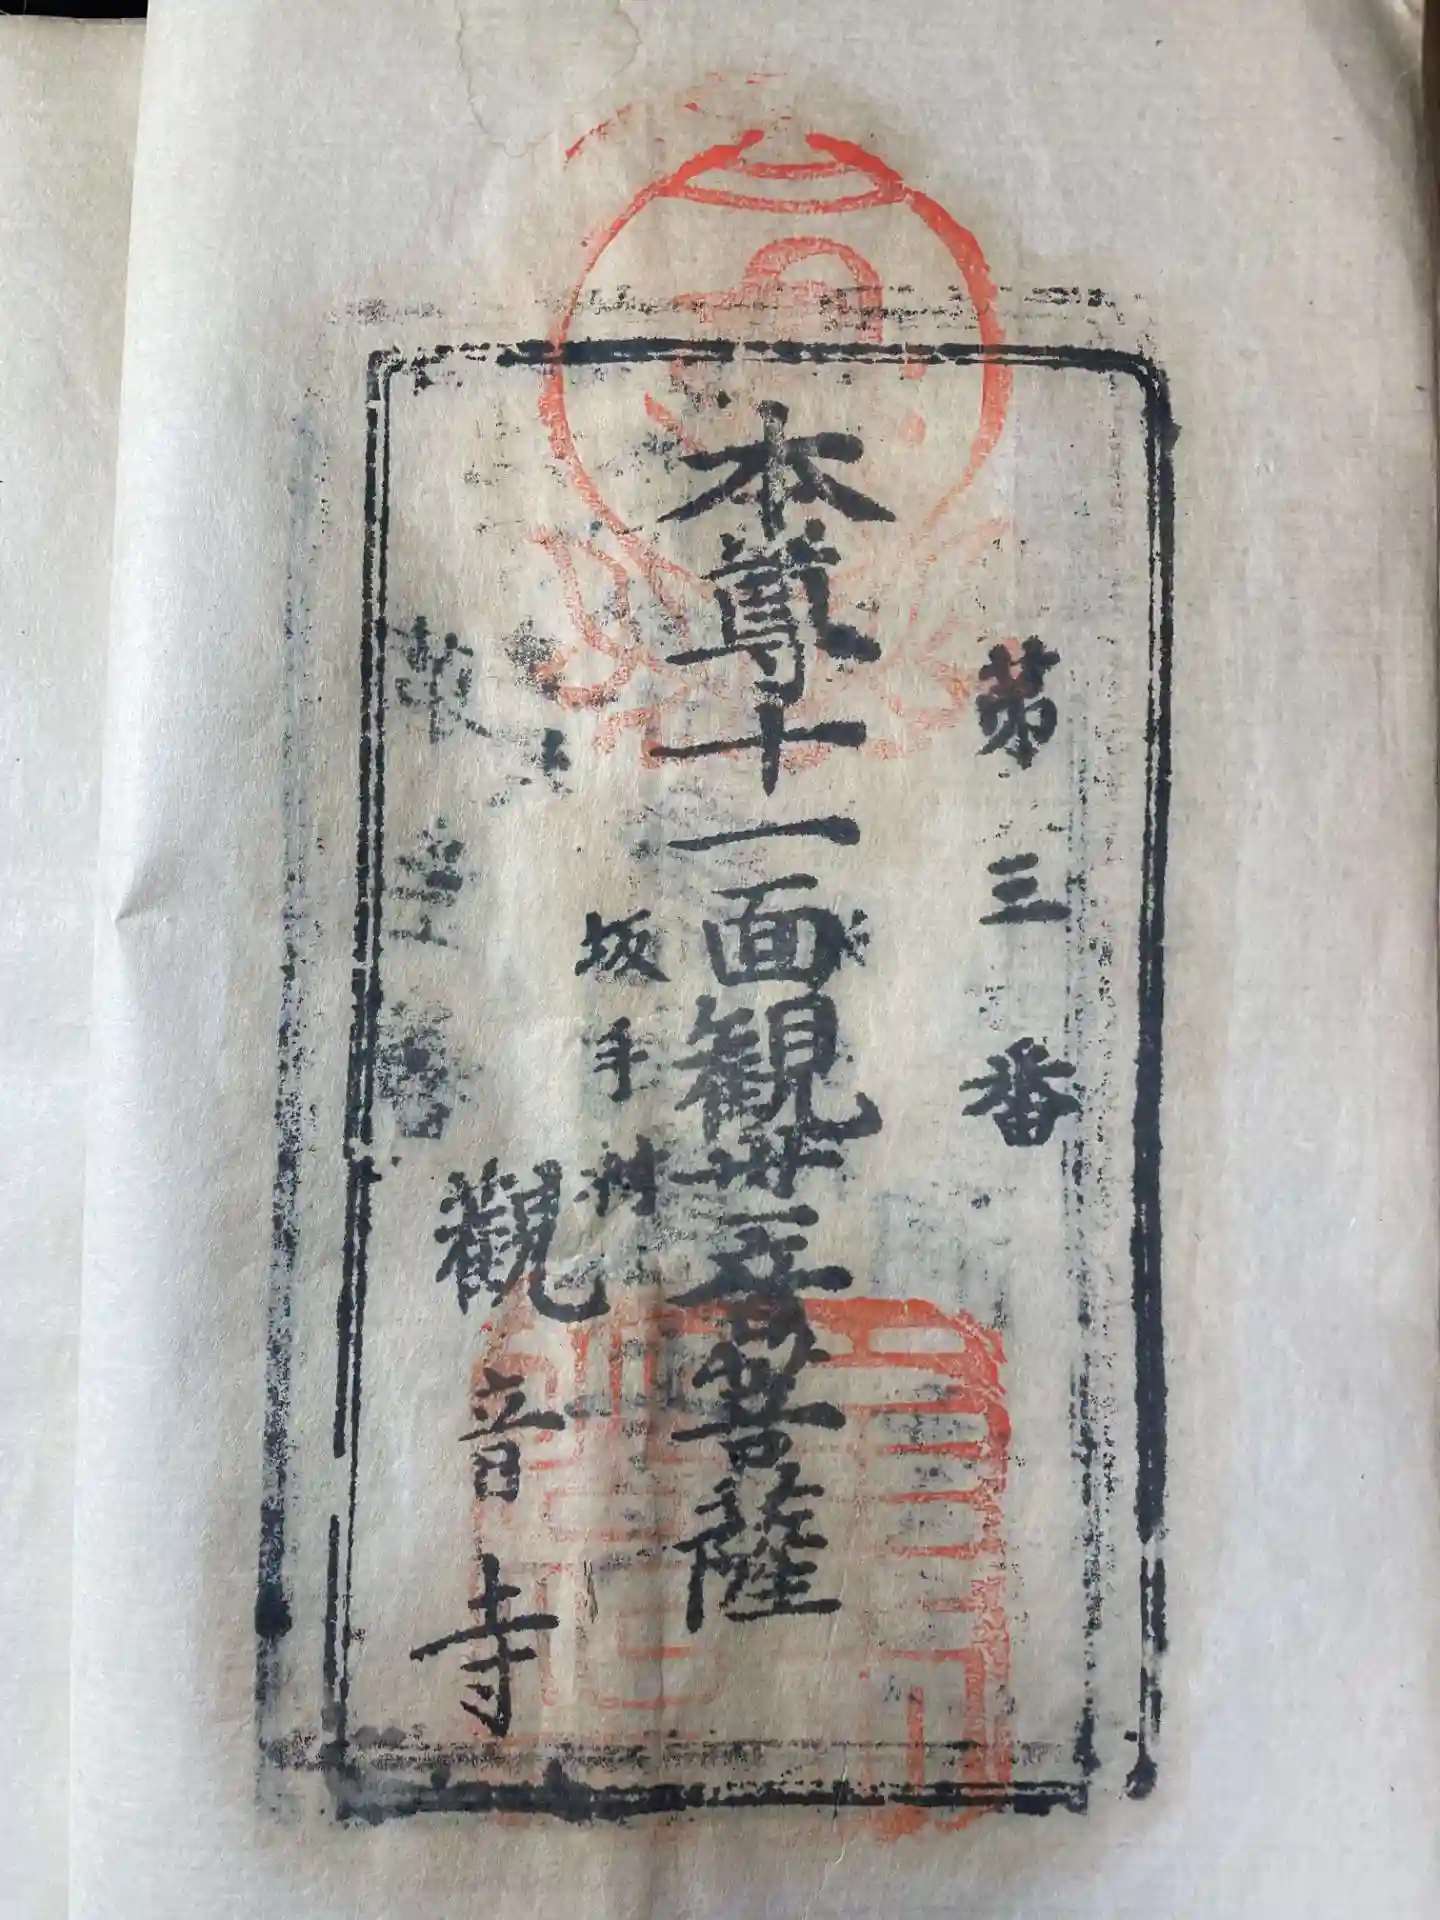 第三番
本尊十一面観世音菩薩
坂手村
觀音寺